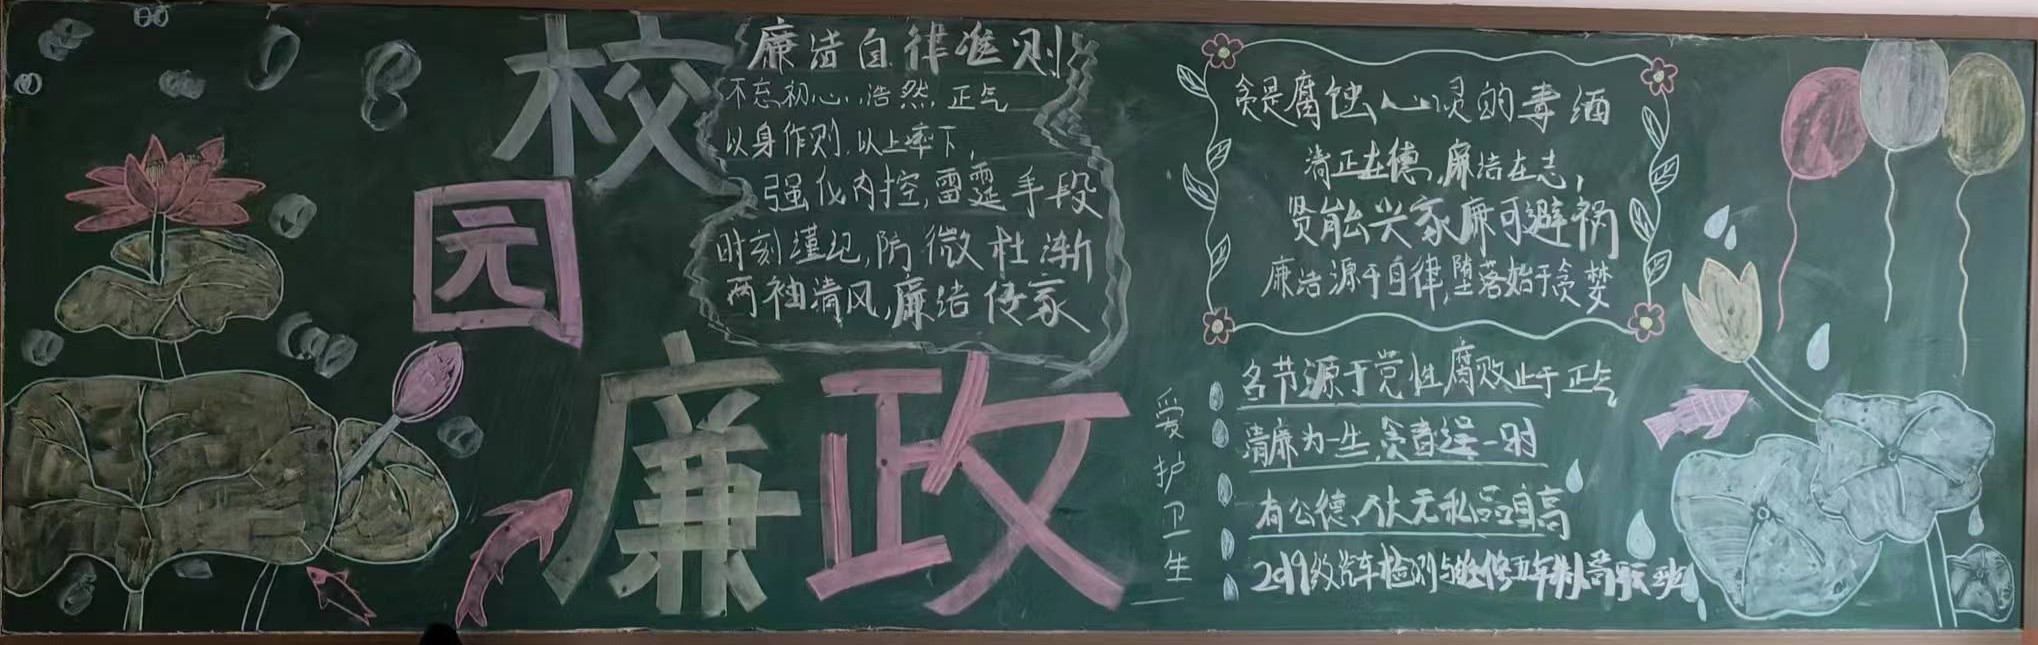 校园廉政
廉洁自律准则
不忘初心,浩然正气
以身作则,以上率下,
强化内控,雷霆手段
时刻谨记,防微杜渐
两袖清风,廉洁传家
爱护卫生
贪是腐蚀心灵的毒酒
清正在德,廉洁在志,
贤能兴家廉可避祸
廉洁源于自律,堕落始于贪婪
名节源于党性腐败止于正气
清廉为一生,贪者误一时
有公德、人无私品自高
2019级汽车检测与维修五年制高职班